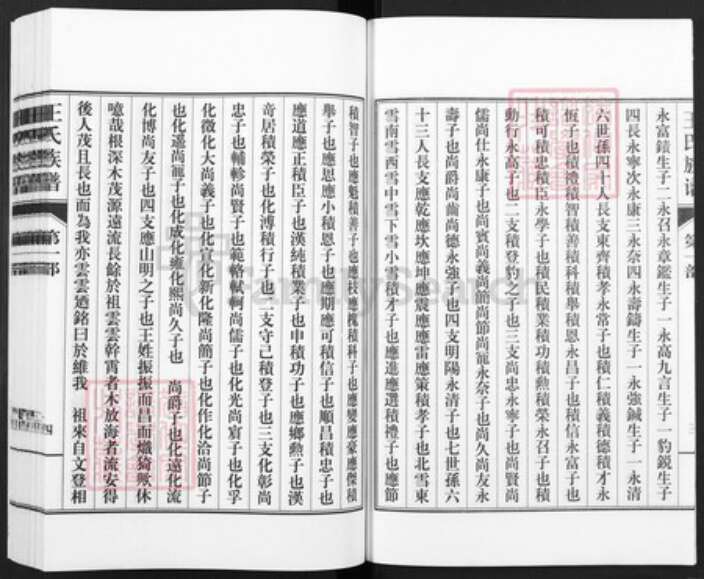 永富鐼生子二永召永章鑑生子一永高九言生子一豹銳生子
四長永寧次永康三永奈四永壽鑄生子一永強鍼生子一永清
六世孫四十人長支東齊積孝永常子也積仁積義積德積才永
恆子也積禮積智積善積科積舉積恩永昌子也積信永富子也
積可積忠積臣永學子也積民積業積功積勲積榮永召子也積
動行永高子也二支積登豹之子也三支尚忠永寧子也尚賢尚
儒尚仕永康子也尚賓尚義尚簡尚節尚寵永奈子也尚久尚友永
壽子也尚爵尚齒尚德永強子也四支明陽永清子也七世孫六
十三人長支應乾應坎應坤應震應應雷應策積孝子也北雪東
雪南雪西雪中雪下雪小雪積才子也應進應選積禮子也應節
積智子也應魁積善子也應枝應槐積科子也應變應豪應傑積
舉子也應恩應小積恩子也應期應可積信子也順昌積忠子也
應道應正積臣子也漢純積業子也申積功子也應鄉勲子也漢
奇居積榮子也化溥積行子也二支守己積登子也三支化彰尚
忠子也輔軫尚賢子也範輅軾軻尚儒子也化光尚賓子也化孚
化徵化大尚義子也化宣化新化隆尚簡子也化作化洽尚節子
也化遙尚寵子也化成化雍化熙尚久子也 尚爵子也化遠化流
化博尚友子也四支應山明之子也王姓振振而昌而熾猗歟休
噫哉根深木茂源遠流長餘於祖雲雲幹霄者木放海者流安得
後人茂且長也而為我亦雲雲廼銘曰於維我 祖來自文登相
王氏族譜
第一部